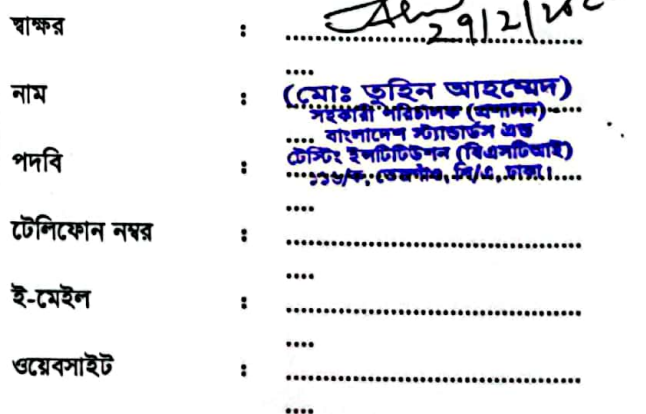 স্বাক্ষর : 29/2/202
নাম : (মোঃ তুহিন আহম্মেদ)
সহকারী পরিচালক (প্রশাসন)
বাংলাদেশ স্ট্যান্ডার্ডস এন্ড
পদবি : টেস্টিং ইনস্টিটিউশন (বিএসটিআই)
১১৬/ক, তেজগাঁও, শি/এ, ঢাকা।
টেলিফোন নম্বর :
ই-মেইল :
ওয়েবসাইট :